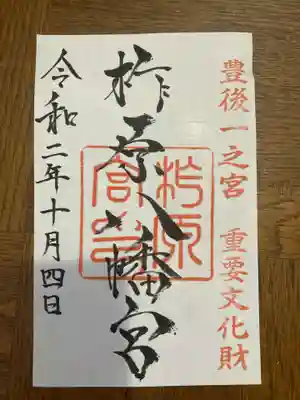 豊後一之宮 重要文化財
柞原八幡宮
令和二年十月四日